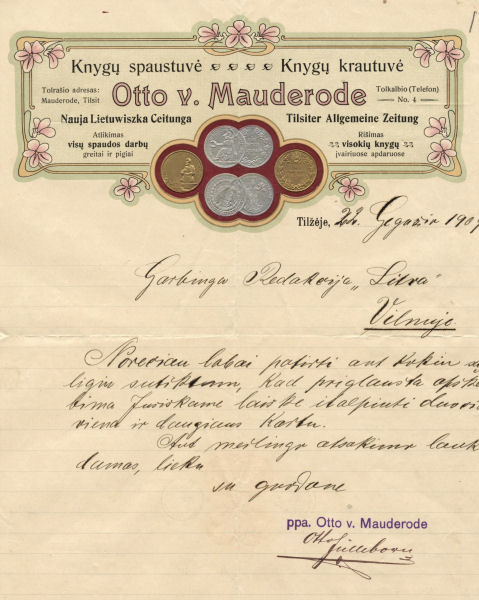 Knygų spaustuvė Knygų krautuvė
Tolrašio adresas:
Mauderode, Tilsit
Otto v. Mauderode
Tolkalbio (Telefon)
No. 4
Nauja Lietuwiszka Ceitunga Tilsiter Allgemeine Zeitung
Atlikimas
visų spaudos darbų
greitai ir pigiai
Rišimas
visokių knygų
įvairiuose apdaruose
Tilžėje, 22. 190
Garbinga Redakcija „Litva“
Vilniuje
Norėčiau labai patirti ant kokiu
ligiu sutiktum, kad priglausta
bima Jusiškame laiške italpinti
viena ir daugiaus Kartu.
Ant meilingo atsakimo lauk
damas, lieku
su guodone
ppa. Otto v. Mauderode
Otto